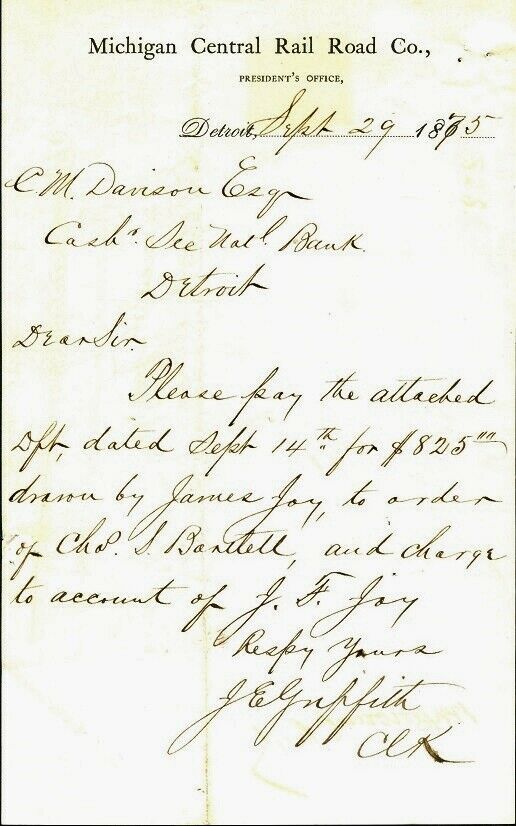 Michigan Central Rail Road Co.,
PRESIDENT'S OFFICE,
Detroit, Sept 29 1875
C M. Davison Esqr
Cashr. Sec Natl. Bank
Detroit
Dear Sir
Please pay the attached
Dft, dated Sept 14th for $825""
drawn by James Joy, to order
of Chas. S. Bartlett, and charge
to account of J. F. Joy
Respy Yours
J E Griffith
Clk